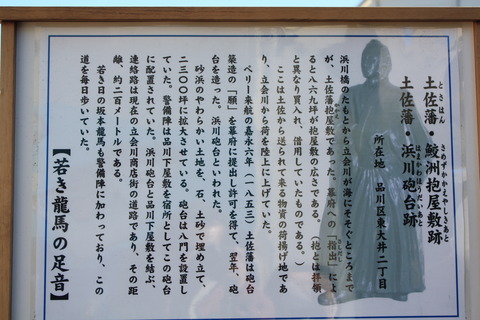 土佐藩・鮫洲抱屋敷跡
とさはん さめずかかえやしきあと
土佐藩・浜川砲台跡
所在地 品川区東大井二丁目
浜川橋のたもとから立会川が海にそそぐところまで
が、土佐藩抱屋敷であった。幕府への「指出」によ
さしだし
ると八六九坪が抱屋敷の広さである。(抱とは拝領
と異なり買入れ、借用していたものである。)
ここは土佐から送られて来る物資の荷揚げ地であ
り、立会川から荷を陸上に上げていた。
ペリー来航の嘉永六年(一八五三)土佐藩は砲台
築造の「願」を幕府に提出し許可を得て、翌年、砲
台を造った。浜川砲台といわれた。
砂浜のやわらかい土地を、石、土砂で埋め立て、
二三〇〇坪に拡大させている。砲台は八門を設置し
ていた。警備陣は品川下屋敷を宿所としてこの砲台
に配置されていた。浜川砲台と品川下屋敷を結ぶ、
連絡路は現在の立会川商店街の道路であり、その距
離、約二百メートルである。
若き日の坂本龍馬も警備陣に加わっており、この
道を毎日歩いていた。
【若き龍馬の足音】